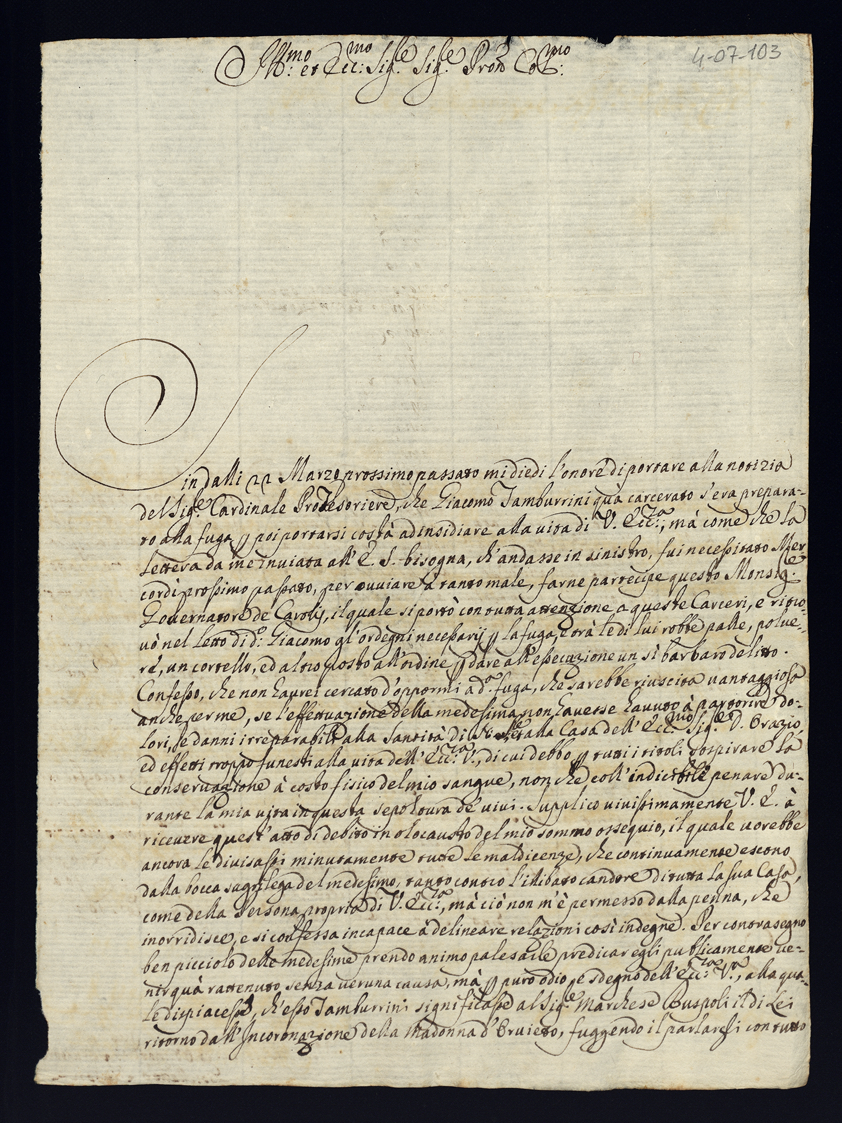 4-07-103
Ill:mo et Ecc:mo Sig.re Sig.re Pron Col:mo
Sin dalli 22 Marzo prossimo passato mi diedi l'onore di portare alla notizia
del Sig.e Cardinale Protesoriere, che Giacomo Tamburrini quà carcerato s'era prepara-
to alla fuga p poi portarsi costà ad insidiare alla vita di V. Ecc:za, mà come che la
lettera da me inviata all'E. S. bisogna, ch'andasse in sinistro, fui necessitato Mer
cordì prossimo passato, per ovviare à tanto male, farne partecipe questo Monsig.re
Governatore de Carolij, il quale si portò con tutta attenzione a queste Carceri, e ritro-
vò nel letto di d.o Giacomo gl'ordegni necessarij p la fuga, e trà le di lui robbe palle, polve-
re, un cortello, ed altro posto all'ordine p dare all'essecuzione un sì barbaro delitto.
Confesso, che non haurei cercato d'oppormi à d.a fuga, che sarebbe riuscita vantaggiosa
anche per me, se l'effettuazione della medesima non havesse havuto à partorire do-
lori, e danni irreparabili alla Santità di alla Casa dell'Ecc:mo Sig.e D. Orazio,
ed effetti troppo funesti alla vita dell'Ecc:za V., di cui debbo p tutti i titoli sospirare la
conservazione à costo fisico del mio sangue, non che coll'indicibile penare du-
rante la mia vita in questa sepoltura de vivi. Supplico vivissimamente V. E. à
ricevere quest'atto di debito in olocausto del mio sommo ossequio, il quale vorrebbe
ancora le divisassi minutamente tutte le maldicenze, che continuamente escono
dalla bocca sagrilega del medesimo, tanto contro l'illibato candore di tutta la sua Casa,
come della Persona propria di V. Ecc:za, mà ciò non m'è permesso dalla penna, che
inorridisce, e si confessa incapace à delineare relazioni così indegne. Per contrasegno
ben picciolo delle medesime prendo animo palesarle predicar egli publicamente ve-
nir quà rattenuto senza veruna causa, mà p puro odio, e sdegno dell'Ecc:za V.ra, alla qua-
le dispiacesse, ch'esso Tamburrini significasse al Sig.e Marchese Ruspoli il di Lei
ritorno dall'Incoronazione della Madonna d'Orvieto, fuggendo il parlaressi con tutto